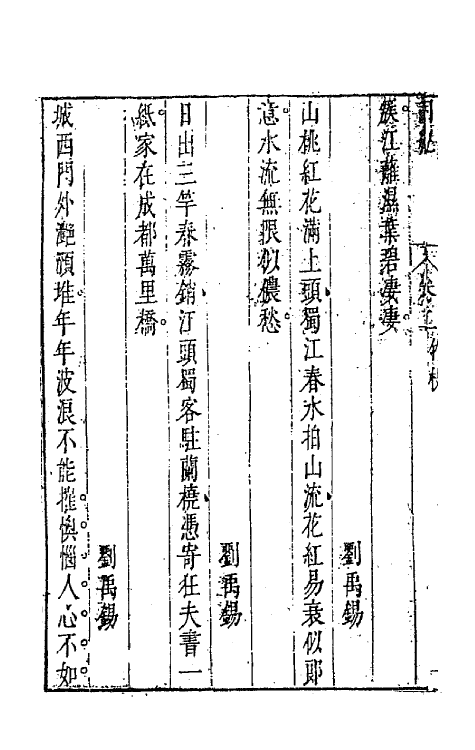 簇江蘺濕葉碧凄凄
劉禹錫
山桃紅花滿上頭蜀江春水拍山流花紅易衰似郎
意水流無限似儂愁
劉禹錫
日出三竿春霧銷江頭蜀客駐蘭橈憑寄狂夫書一
紙家在成都萬里橋
劉禹錫
城西門外灔澦堆年年波浪不能摧懊惱人心不如